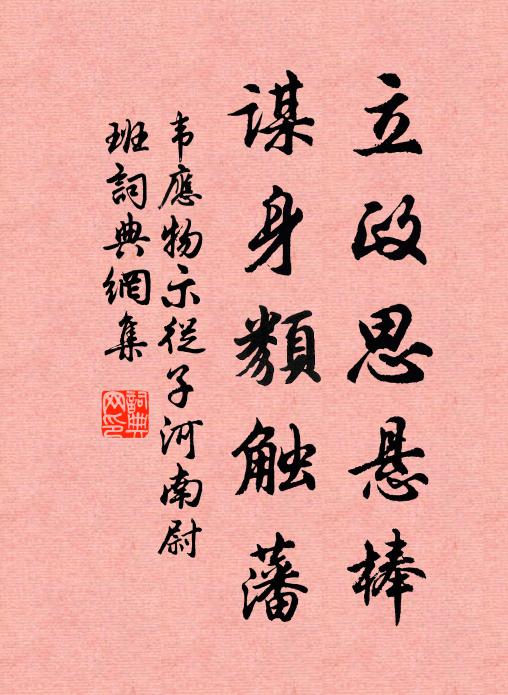 立政思悬棒
谋身類触藩
韦應物示從子河南尉
班詞典網集
詞典
网印